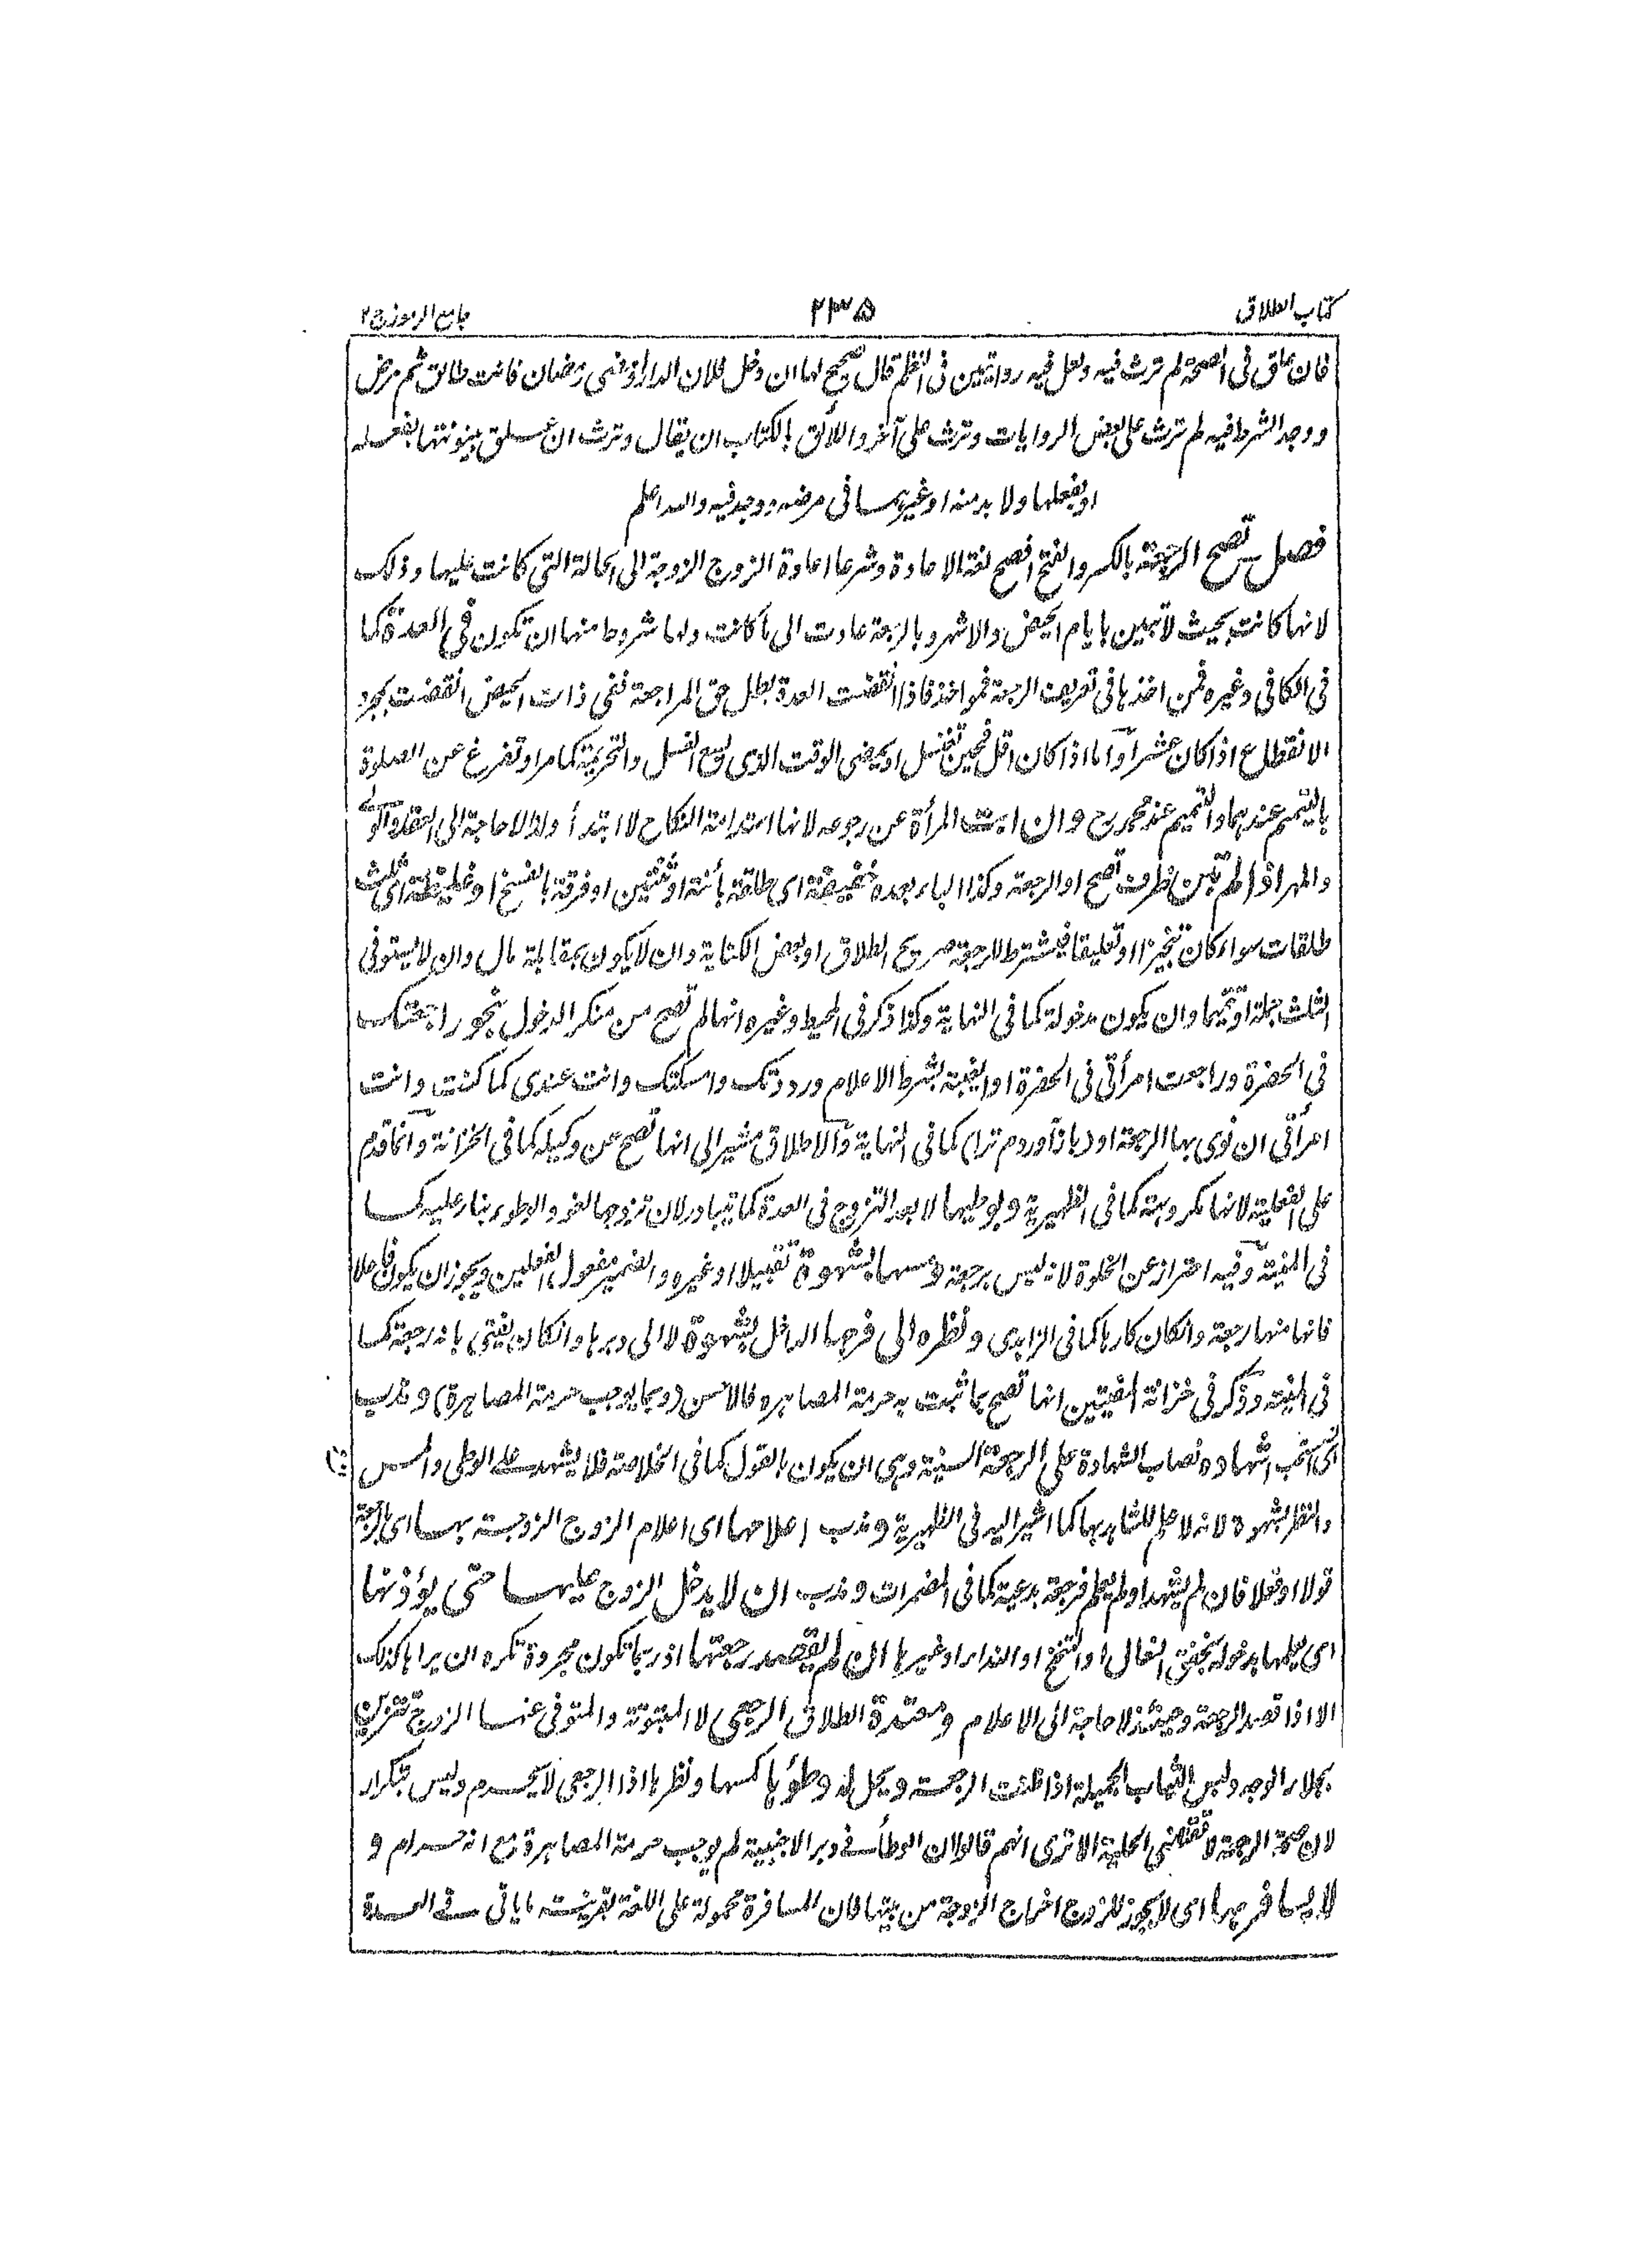 كتاب الطلاق ٢٣٥ جامع الرموز ج ٢
فان علق فى الصحة لم ترث فيه ولعل فيه روايتين فى النظم قال صحيح لها ان دخل فلان الدار او مضى رمضان فانت طالق ثم مرض
ووجد الشرط فيه لم ترث على بعض الروايات وترث على آخر واللائق بالكتاب ان يقال وترث ان علق بينونتها بفعله
او بفعلها ولا بد منه او غيرهما فى مرضه ووجد فيه والله اعلم
فصل تصح الرجعة بالكسر والفتح افصح لغة الاعادة وشرعا اعادة الزوج الزوجة الى الحالة التى كانت عليها وذلك
لانها كانت بحيث لا تبين بايام الحيض والاشهر وبالرجعة عادت الى ما كانت ولها شروط منها ان تكون فى العدة كما
فى الكافى وغيره فمن اخذها فى تعريف الرجعة فمواخذ فاذا انقضت العدة بطل حق المراجعة ففى ذات الحيض انقضت بمجرد
الانقطاع اذا كان عشرا واما اذا كان اقل فحين تغتسل او يمضى الوقت الذى يسع الغسل والتحريمة كما مر او تفرغ عن الصلوة
بالتيمم عندهما والتيمم عند محمد رح وان ابت المرأة عن رجوعه لانها استدامة النكاح لا ابتدأ ولذا لا حاجة الى العقد والولى
والمهر اذا لم تبن ظرف تصح او الرجعة وكذا الباء بعده خفيفة اى طلقة بائنة او ثنتين او فرقة بالفسخ او غليظة اى ثلث
طلقات سواء كان تنجيزا او تعليقا فيشترط للرجعة صريح الطلاق او بعض الكناية وان لا يكون بمقابلة مال وان لا يستوفى
الثلث جملة او تتميما وان يكون مدخولة كما فى النهاية وكذا ذكر فى المحيط وغيره انها لم تصح من منكر الدخول بنحو راجعتك
فى الحضرة وراجعت امرأتى فى الحضرة او الغيبة بشرط الاعلام ورددتك وامسكتك وانت عندى كما كنت وانت
امرأتى ان نوى بها الرجعة او (باز آوردم ترا) كما فى النهاية والاطلاق مشير الى انها تصح عن وكيله كما فى الخزانة وانما قدم
على الفعلية لانها مكروهة كما فى الظهيرية وبوطيها لا بعد التزوج فى العدة كما يتبادر لان تزوجها لغو والوطوء بناء عليه كما
فى المنية وفيه احتراز عن الخلوة لانه ليس برجعة ومسها بشهوة تقبيلا او غيره والضمير مفعول الفعلين ويجوز ان يكون فاعلا
فانها منها رجعة وان كان كارها كما فى الزاهدى ونظره الى فرجها الداخل بشهوة لا الى دبرها وان كان يفتى بانه رجعة كما
فى المنية وذكر فى خزانة المفتيين انها تصح بما ثبت به حرمة المصاهرة فالاحسن (وبما يوجب حرمة المصاهرة) وندب
اى استحب اشهاده نصاب الشهادة على الرجعة السنية وهى ان يكون بالقول كما فى الخلاصة فلا يشهد على الوطى والمس
والنظر بشهوة لانه لا علم للشاهد بها كما اشير اليه فى الظهيرية وندب اعلامها اى اعلام الزوج الزوجة بها اى بالرجعة
قولا او فعلا فان لم يشهد او لم يعلم فرجعة بدعية كما فى المضمرات وندب ان لا يدخل الزوج عليها حتى يؤذنها
اى يعلمها بدخوله بخفق النعال او التنحنح او النداء او غيرها ان لم يقصد رجعتها اذ ربما تكون مجردة تكره ان يراها كذلك
الا اذا قصد الرجعة وحينئذ لا حاجة الى الاعلام ومعتدة الطلاق الرجعى لا المبتوتة والمتوفى عنها الزوج تتزين
بجلاء الوجه ولبس الثياب الجميلة اذا ظنت الرجعة ويحل له وطؤها كمسها ونظرها اذ الرجعى لا يحرم وليس بتكرار
لان صحة الرجعة لا تقتضى الحلية الا ترى انهم قالوا ان الوطأ فى دبر الاجنبية لم يوجب حرمة المصاهرة مع انه حرام و
لا يسافر بها اى لا يجوز للزوج اخراج الزوجة من بيتها فان المسافرة محمولة على اللغة بقرينة ما ياتى فى العدة